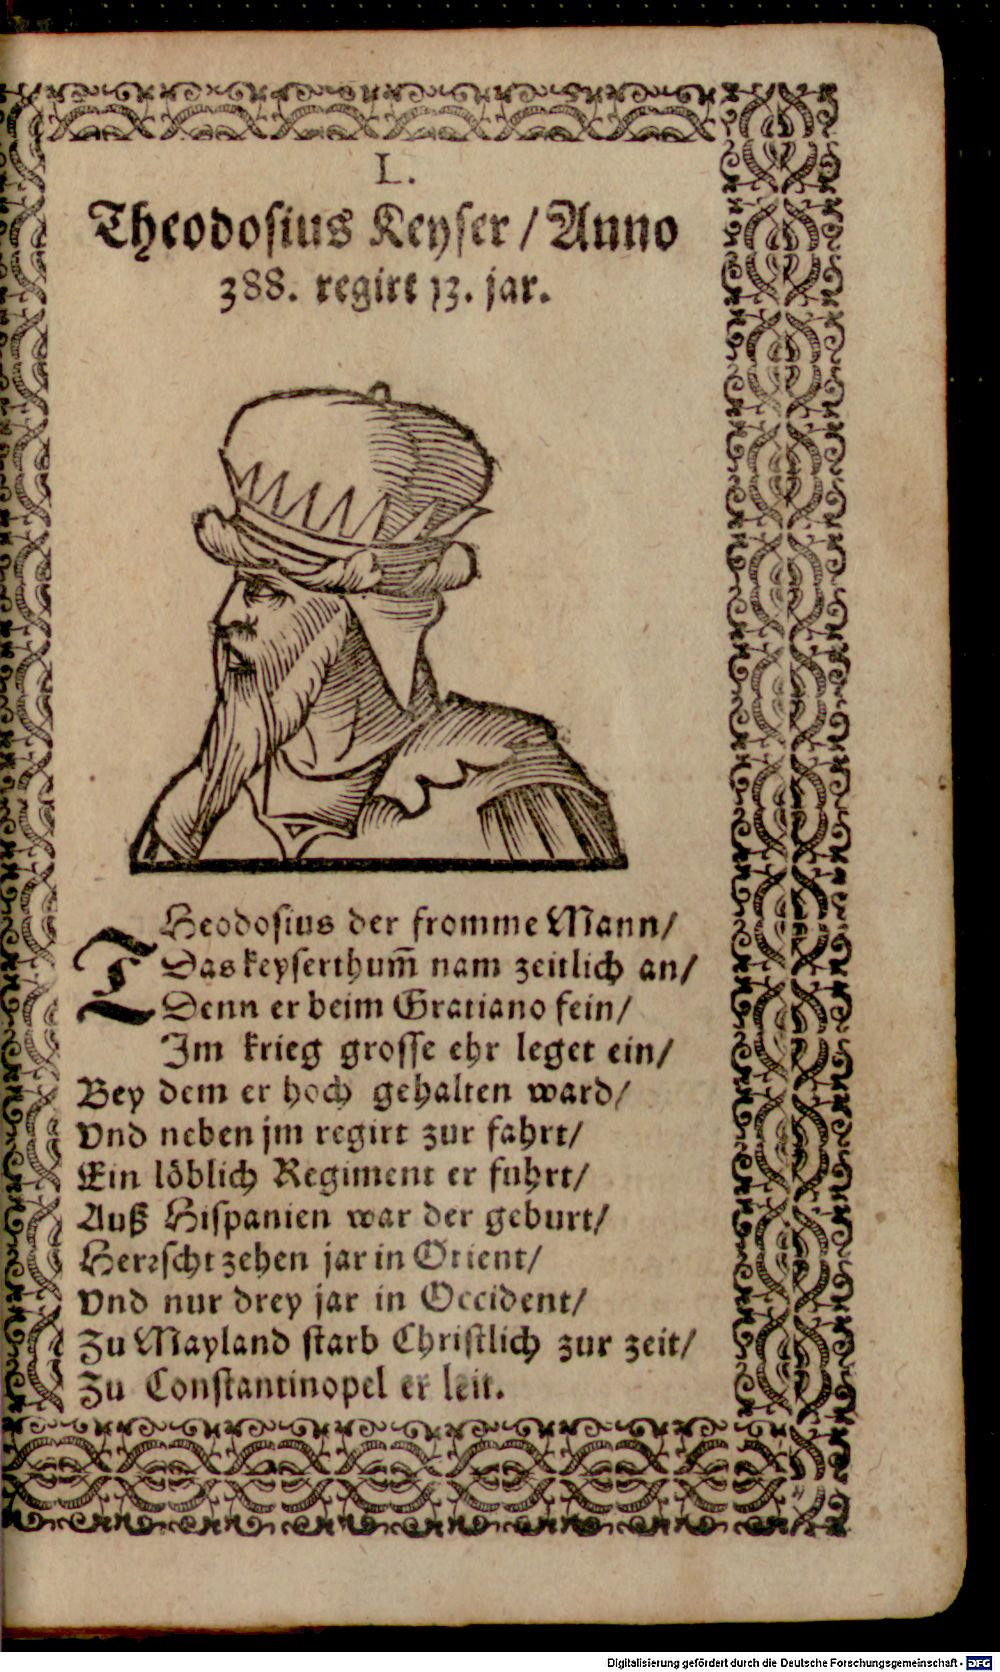 L.
Theodosius Keyser / Anno
388. regirt 13. jar.
THeodosius der fromme Mann /
Das keyserthum̃ nam zeitlich an /
Denn er beim Gratiano fein /
Im krieg grosse ehr leget ein /
Bey dem er hoch gehalten ward /
Vnd neben jm regirt zur fahrt /
Ein löblich Regiment er fuhrt /
Auß Hispanien war der geburt /
Herrscht zehen jar in Orient /
Vnd nur drey jar in Occident /
Zu Mayland starb Christlich zur zeit /
Zu Constantinopel er leit.
Digitalisierung gefördert durch die Deutsche Forschungsgemeinschaft - DFG